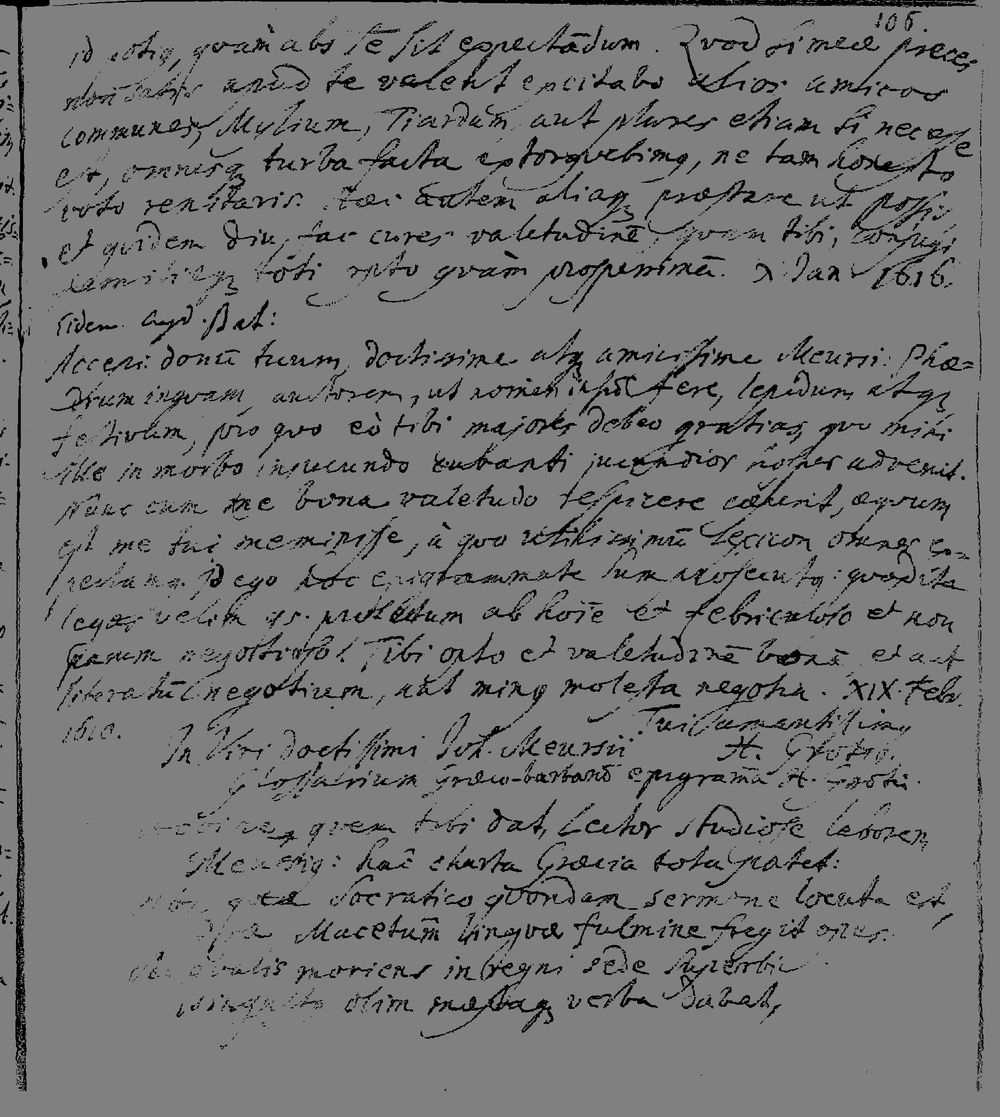 106.
quàm abs te sit expectãdum. Qvod si meæ preces
non satis apud te valent excitabo alios amicos
communes, Mylium, Tiardum, aut plures etiam si necesse
est, omnesq turba facta extorqvebimq, ne tam honesto
voto renitaris. Hæc autem aliaq præstare ut possis
et quidem diu, fac cures valetudinẽ, quam tibi, conjugi
familiæq toti opto qvàm prosperrimã. X Jan 1616.
Eidem Lugd. Bat:
Accepi donũ tuum, doctissime atq amicissime Meursi: Phæ=
drum inqvam, auctorem, ut nomen ipsũ fere, lepidum atq
festivum, pro quo eò tibi majores debeo gratias, quo mihi
ille in morbo injucundo cubanti jucundior hospes advenit.
Nunc cum me bona valetudo respicere cœperit, æqvum
est me tui meminisse, à quo utilissimũ Lexicon omnes ex=
pectamq. Id ego hoc epigrammate sum prosecutq: quod ita
legas velim qs. profectum ab hoĩe et febriculoso et non
parum negotioso. Tibi opto et valetudinẽ bonã et aut
literatũ negotium, aut minq molesta negotia. XIX. Febr.
1610.
Tui amantissimq
H. Grotiq.
In Viri doctissimi Joh. Meursii
Glossarium Græco-barbarũ epigramma H. Grotii.
quem tibi dat, Lector studiose laborem
Meursiq: hac charta Græcia tota patet:
Non quæ Socratico qvondam sermone locuta est,
Quæ Macetum lingvæ fulmine fregit opes.
Sed qvalis moriens in regni sede superbi
singultq olim mœstaq verba dabat,